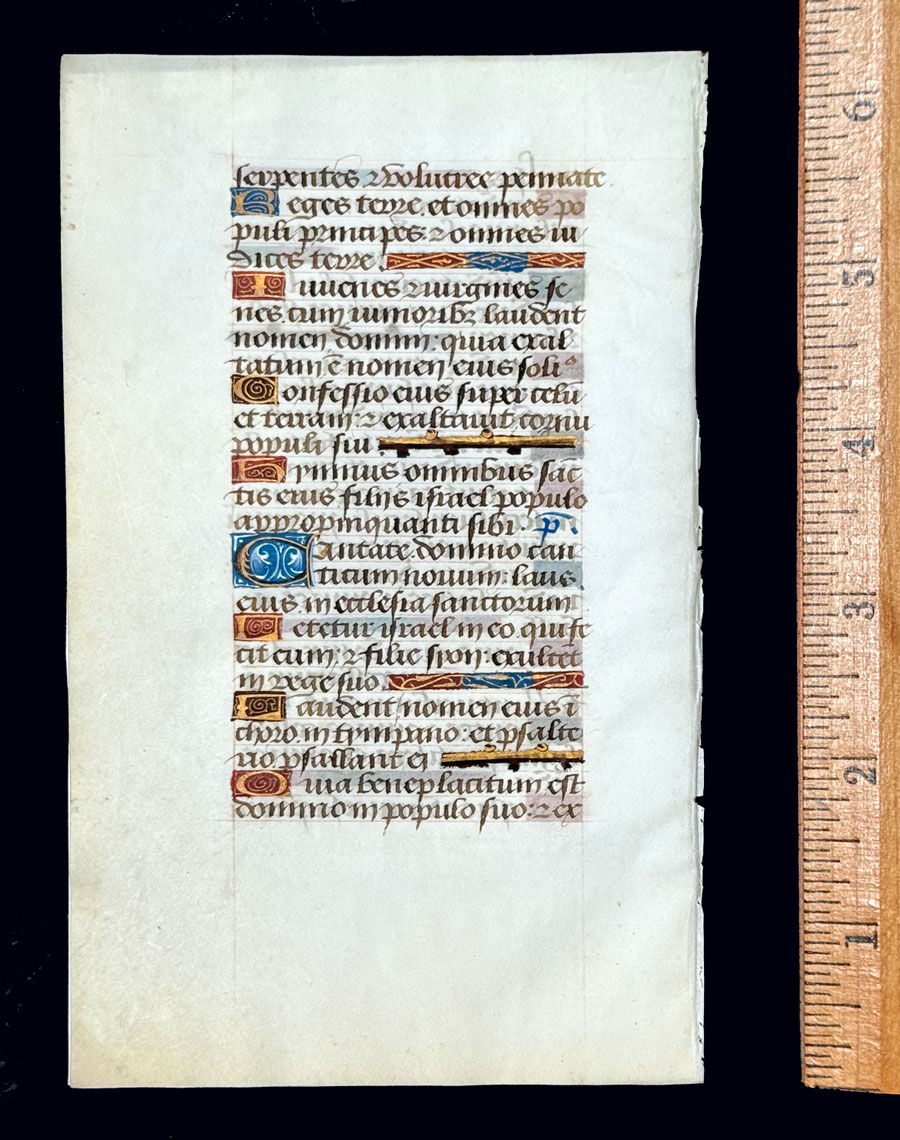 serpentes ⁊ volucres pennate
Reges terre. et omnes po
puli principes ⁊ omnes iu
dices terre.
Iuuenes ⁊ uirgines se
nes. cum iunioribꝫ laudent
nomen domini: quia exal
tatum ē nomen eius soliᵒ
Confessio eius super celū
et terram: ⁊ exaltauit cornu
populi sui.
Hymnus omnibus sāc
tis eius filiis israel populo
appropinquanti sibi. p̄.
Cantate domino can
ticum nouum: laus
eius in ecclesia sanctorum
Letetur israel in eo qui fe
cit eum: ⁊ filie syon: exultēt
in rege suo.
Laudent nomen eius ī
choro. in tympano: et psalte
rio psallant ei
Quia beneplacitum est
domino in populo suo: ⁊ ex
6
5
4
3
2
1